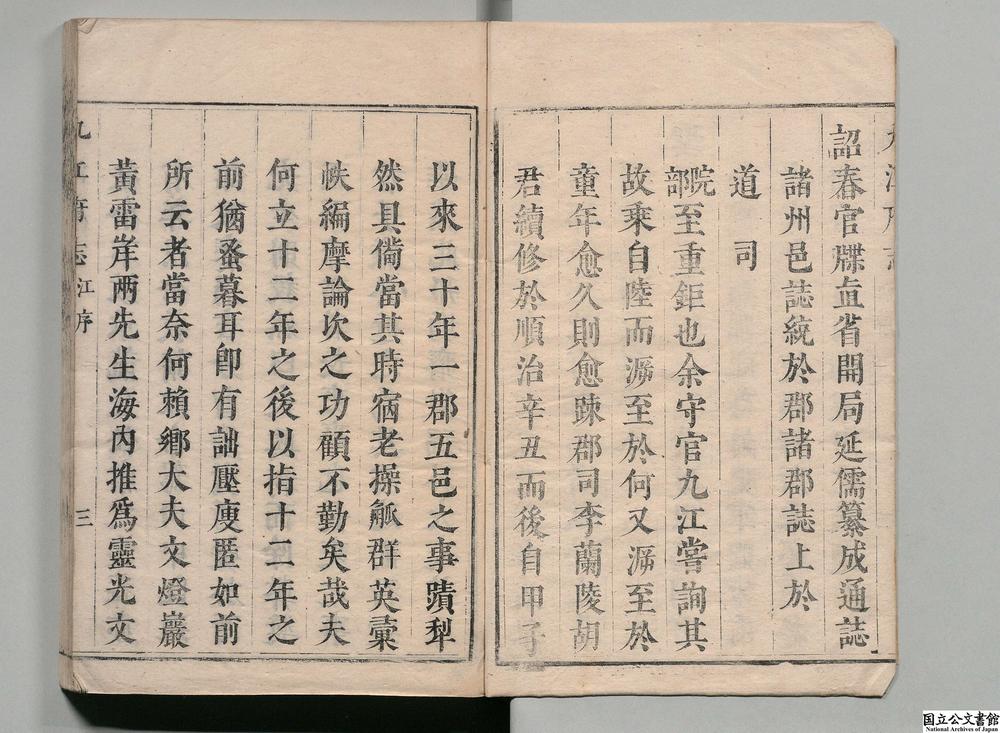 九江府志
詔春官牒直省開局延儒纂成通誌
諸州邑誌統於郡諸郡誌上於
道司
院部至重鉅也余守官九江嘗詢其
故乘自陸而泝至於何又泝至於
童年愈久則愈踈郡司李蘭陵胡
君續修於順治辛丑而後自甲子
以來三十年一郡五邑之事蹟犁
然具備當其時宿老操觚群英彚
帙編摩論次之功顧不勤矣哉夫
何立十二年之後以指十二年之
前猶蚤暮耳卽有詘壓廋匿如前
所云者當奈何賴鄉大夫文燈巖
黃雷岸兩先生海內推爲靈光文
九江府志 江序 三
国立公文書館
National Archives of Japan